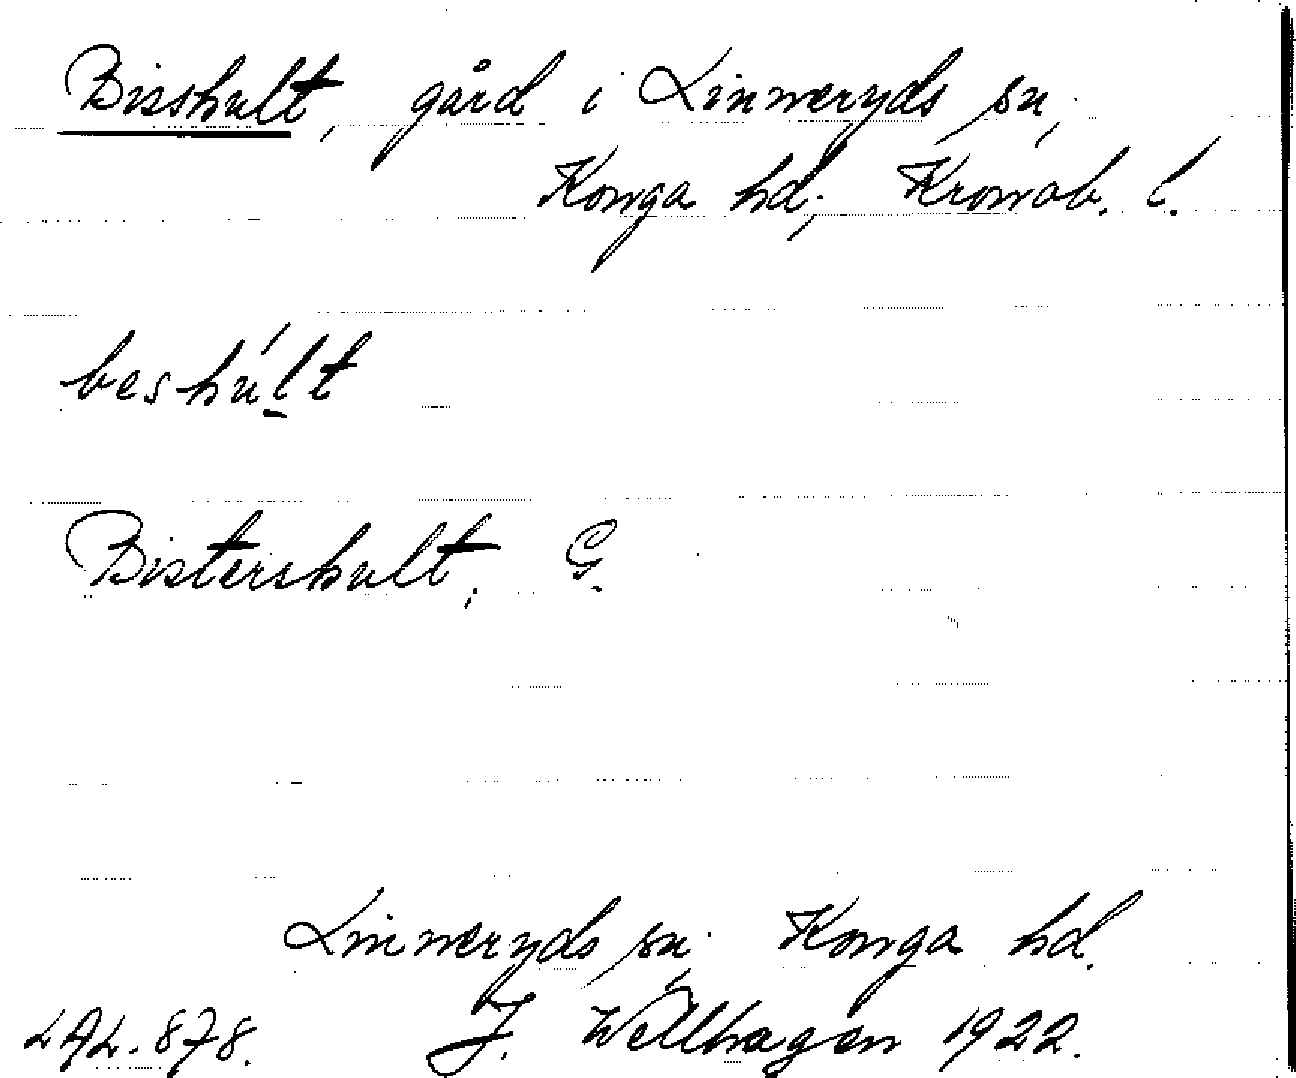 Bisshult, gård i Linneryds sn,
Konga hd; Kronob. l.
beshúlt
Bistershult, G.
Linneryds sn. Konga hd.
LAL. 878. J. Wellhagen 1922.